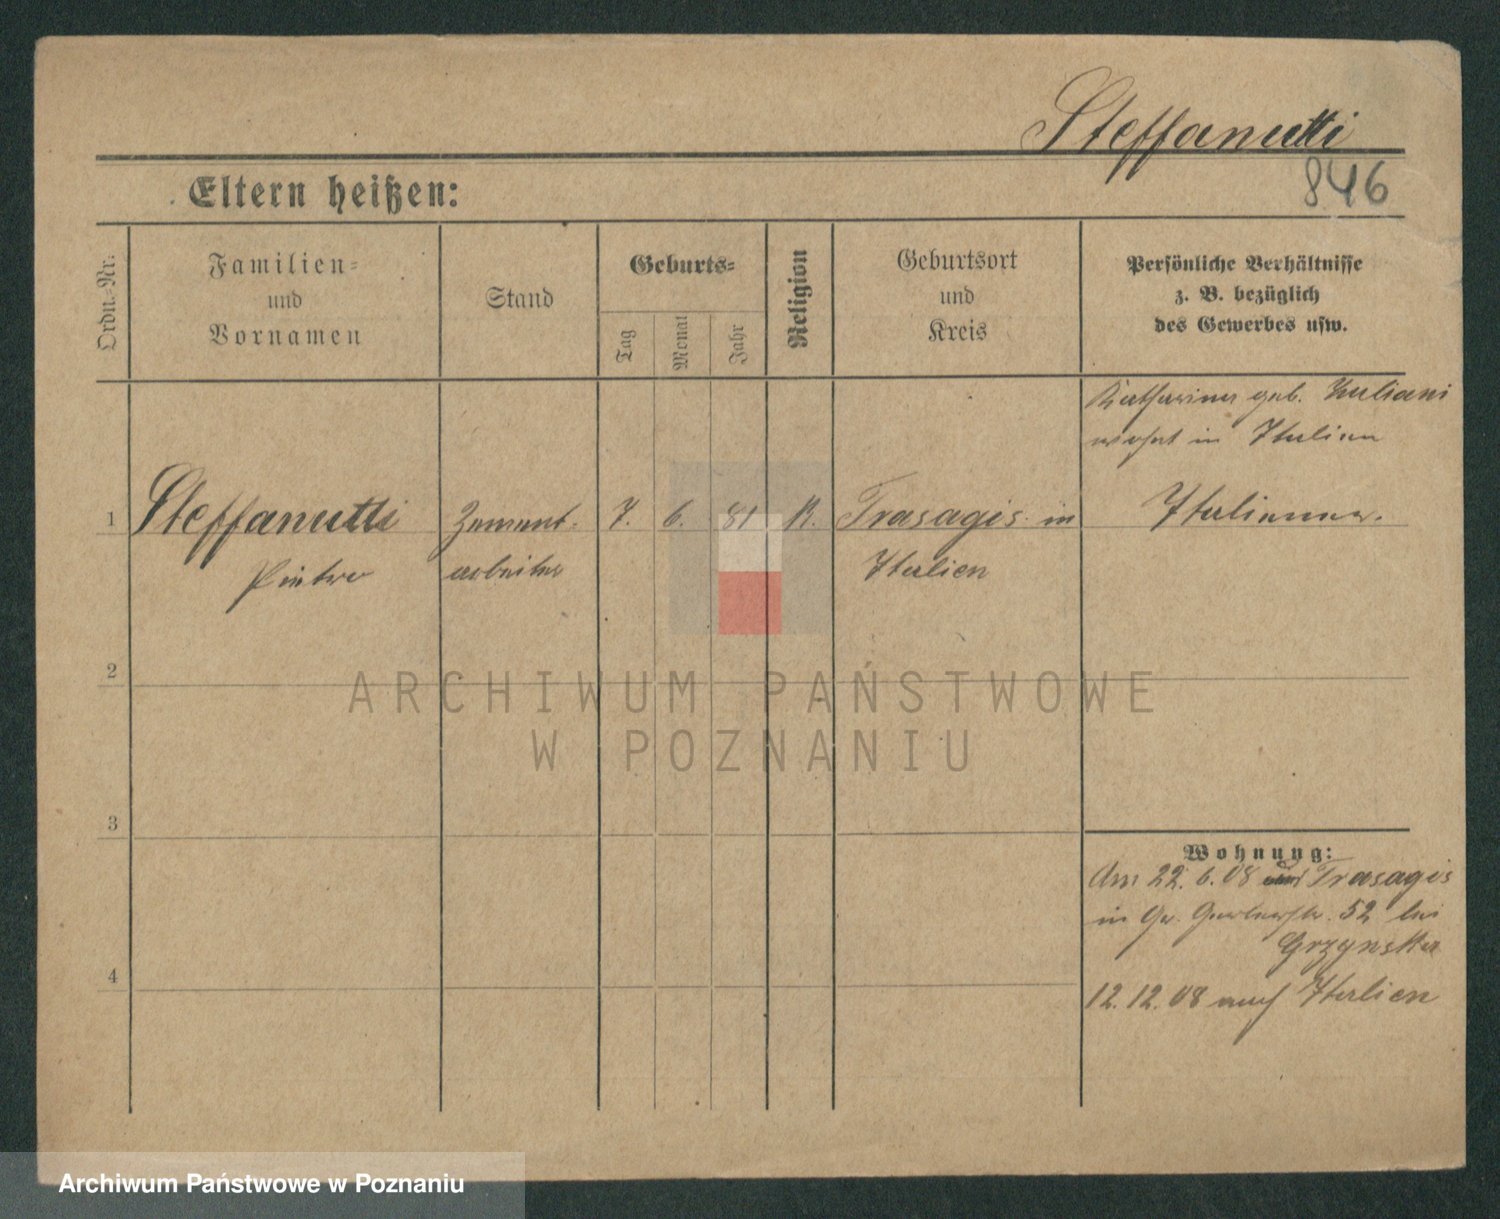 Steffanutti
846
Eltern heißen:
Ordn. Nr.
Familien-
und
Vornamen
Stand
Geburts-
Tag
Monat
Jahr
Religion
Geburtsort
und
Kreis
Persönliche Verhältnisse
z. B. bezüglich
des Gewerbes usw.
Katharina geb. Zuliani
wohnt in Italien
1 Steffanutti Zement- 7. 6. 81 K. Trasagis in Italiener.
Pietro arbeiter Italien
2
3
4
Wohnung:
Am 22. 6. 08 Trasagis
in Gr. Gerberstr. 52 bei
Grzynska
12. 12. 08 auf Italien
ARCHIWUM PAŃSTWOWE
W POZNANIU
Archiwum Państwowe w Poznaniu